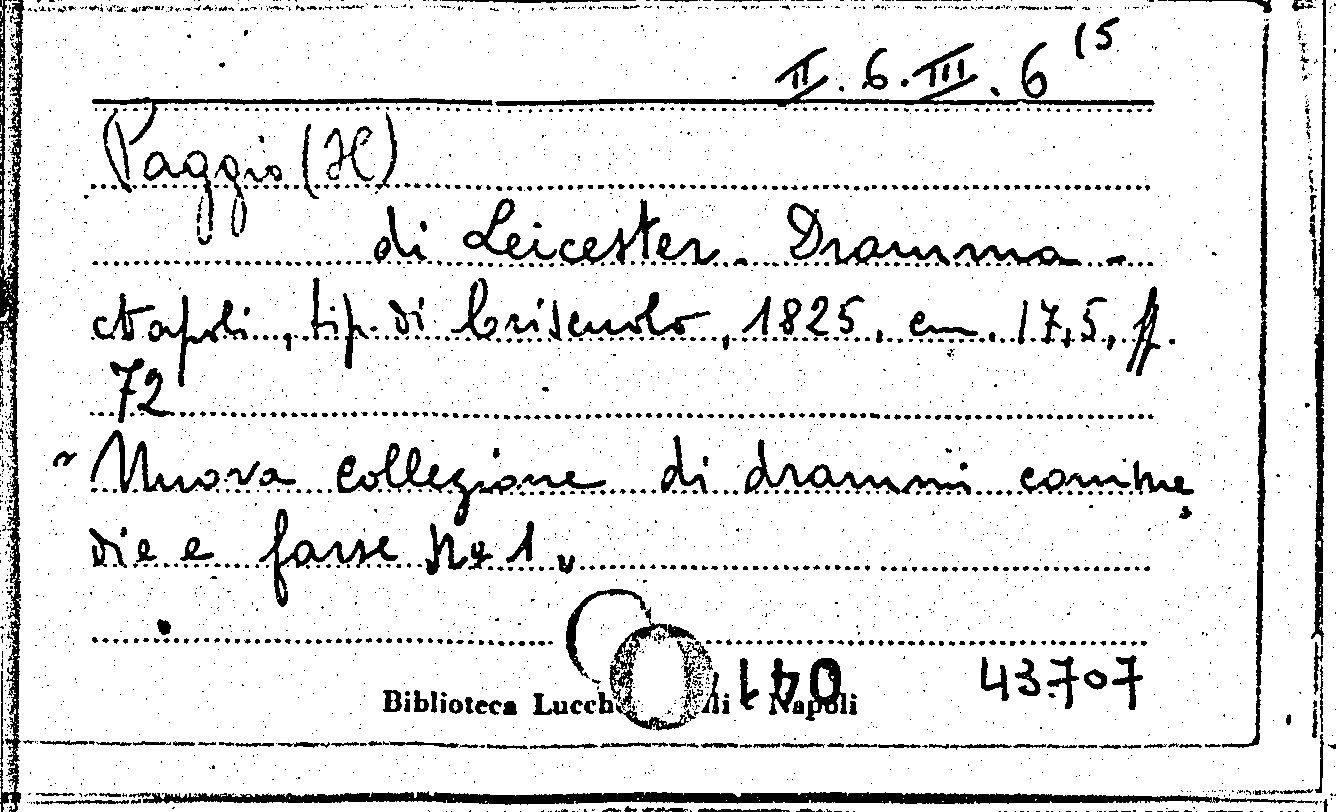 II. 6. III. 6 15
Paggio (Il)
di Leicester. Dramma -
Napoli, tip. di Criscuolo, 1825, cm. 17,5, ff.
72
" Nuova collezione di drammi comme
die e farse Nº 1 "
Biblioteca Lucch li - Napoli
43.707